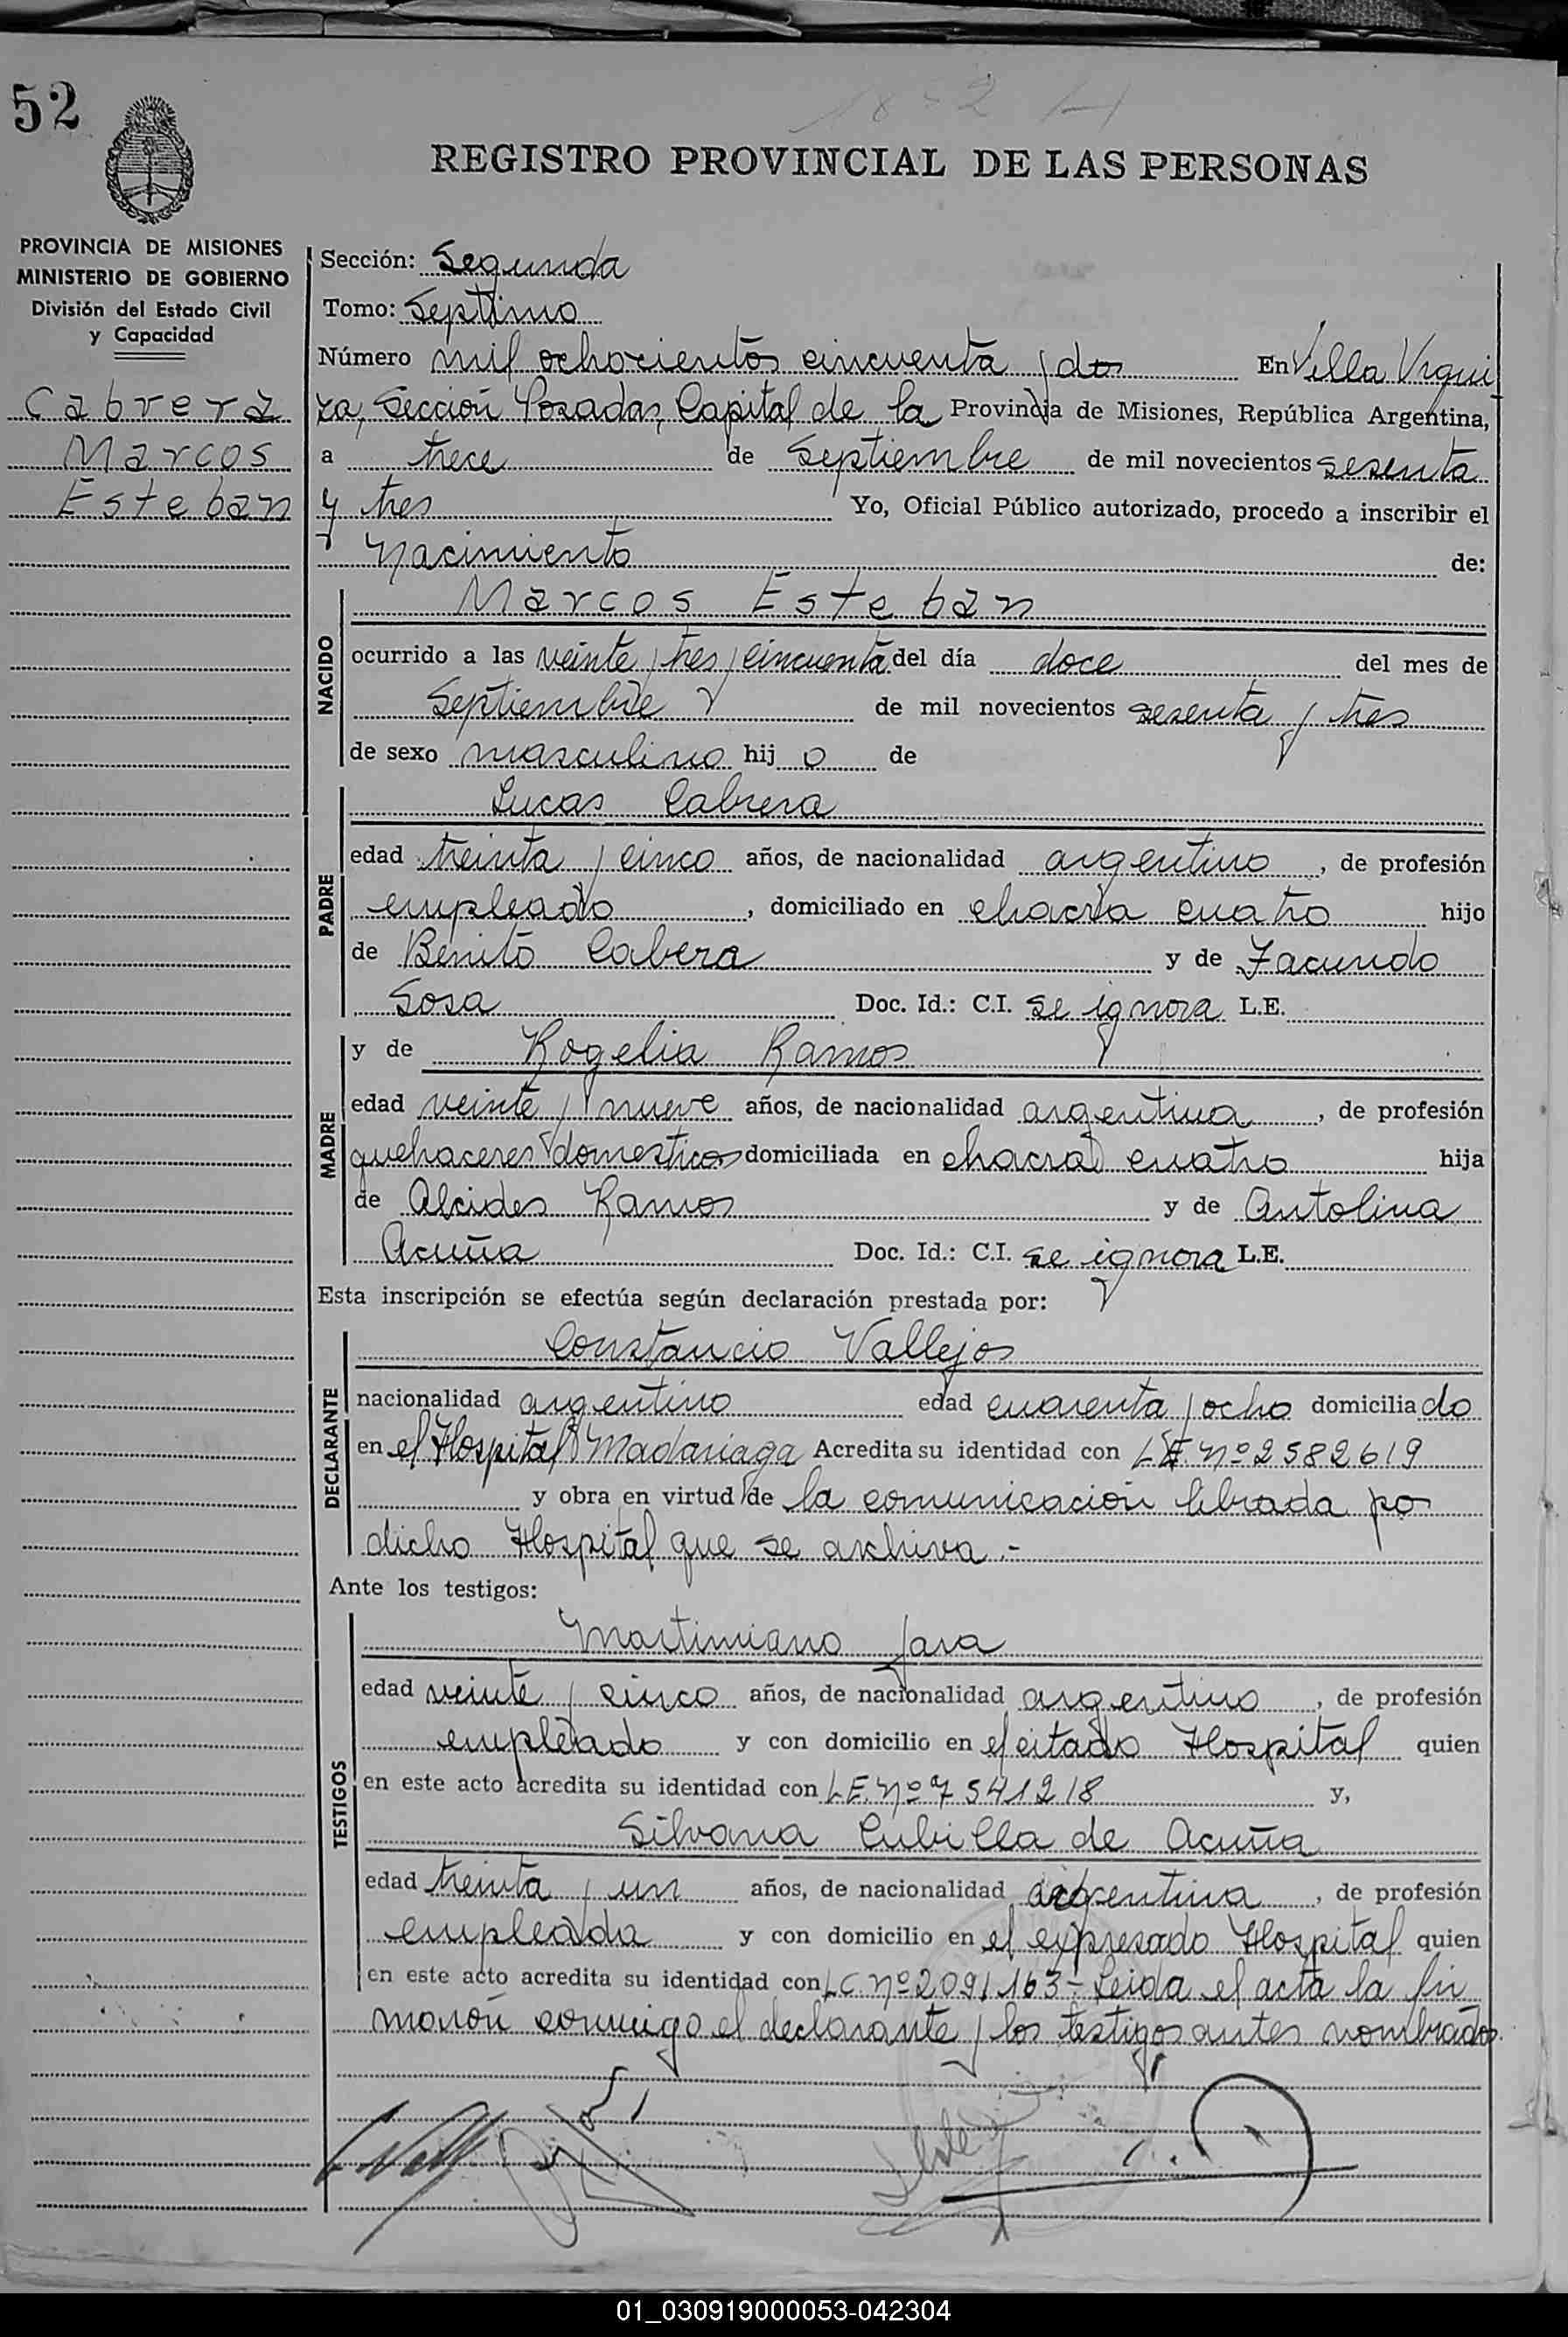 52
REGISTRO PROVINCIAL DE LAS PERSONAS
PROVINCIA DE MISIONES
MINISTERIO DE GOBIERNO
División del Estado Civil
y Capacidad
Cabrera
Marcos
Esteban
Sección: Segunda
Tomo: Septimo
Número mil ochocientos cincuenta y dos En Villa Urqui
za, Sección Posadas, Capital de la Provincia de Misiones, República Argentina,
a trece de Septiembre de mil novecientos sesenta
y tres Yo, Oficial Público autorizado, procedo a inscribir el
Nacimiento de:
NACIDO
Marcos Esteban
ocurrido a las veinte y tres y cincuenta del día doce del mes de
Septiembre de mil novecientos sesenta y tres
de sexo masculino hij o de
PADRE
Lucas Cabrera
edad treinta y cinco años, de nacionalidad argentino, de profesión
empleado, domiciliado en chacra cuatro hijo
de Benito Cabera y de Facundo
Sosa Doc. Id.: C.I. se ignora L.E.
MADRE
y de Rogelia Ramos
edad veinte y nueve años, de nacionalidad argentina, de profesión
quehaceres domesticos domiciliada en chacra cuatro hija
de Alcides Ramos y de Antolina
Acuña Doc. Id.: C.I. se ignora L.E.
Esta inscripción se efectúa según declaración prestada por:
DECLARANTE
Constancio Vallejos
nacionalidad argentino edad cuarenta y ocho domiciliado
en el Hospital Madariaga Acredita su identidad con L.E. Nº 2582619
y obra en virtud de la comunicación librada po
dicho Hospital que se archiva.-
Ante los testigos:
TESTIGOS
Martimiano Jara
edad veinte y cinco años, de nacionalidad argentino, de profesión
empleado y con domicilio en el citado Hospital quien
en este acto acredita su identidad con L.E. Nº 7541218 y,
Silvana Cubilla de Acuña
edad treinta y un años, de nacionalidad argentina, de profesión
empleada y con domicilio en el expresado Hospital quien
en este acto acredita su identidad con L.C. Nº 2091163- Leida el acta la fir
marón conmigo el declarante y los testigos antes nombrados
01_030919000053-042304